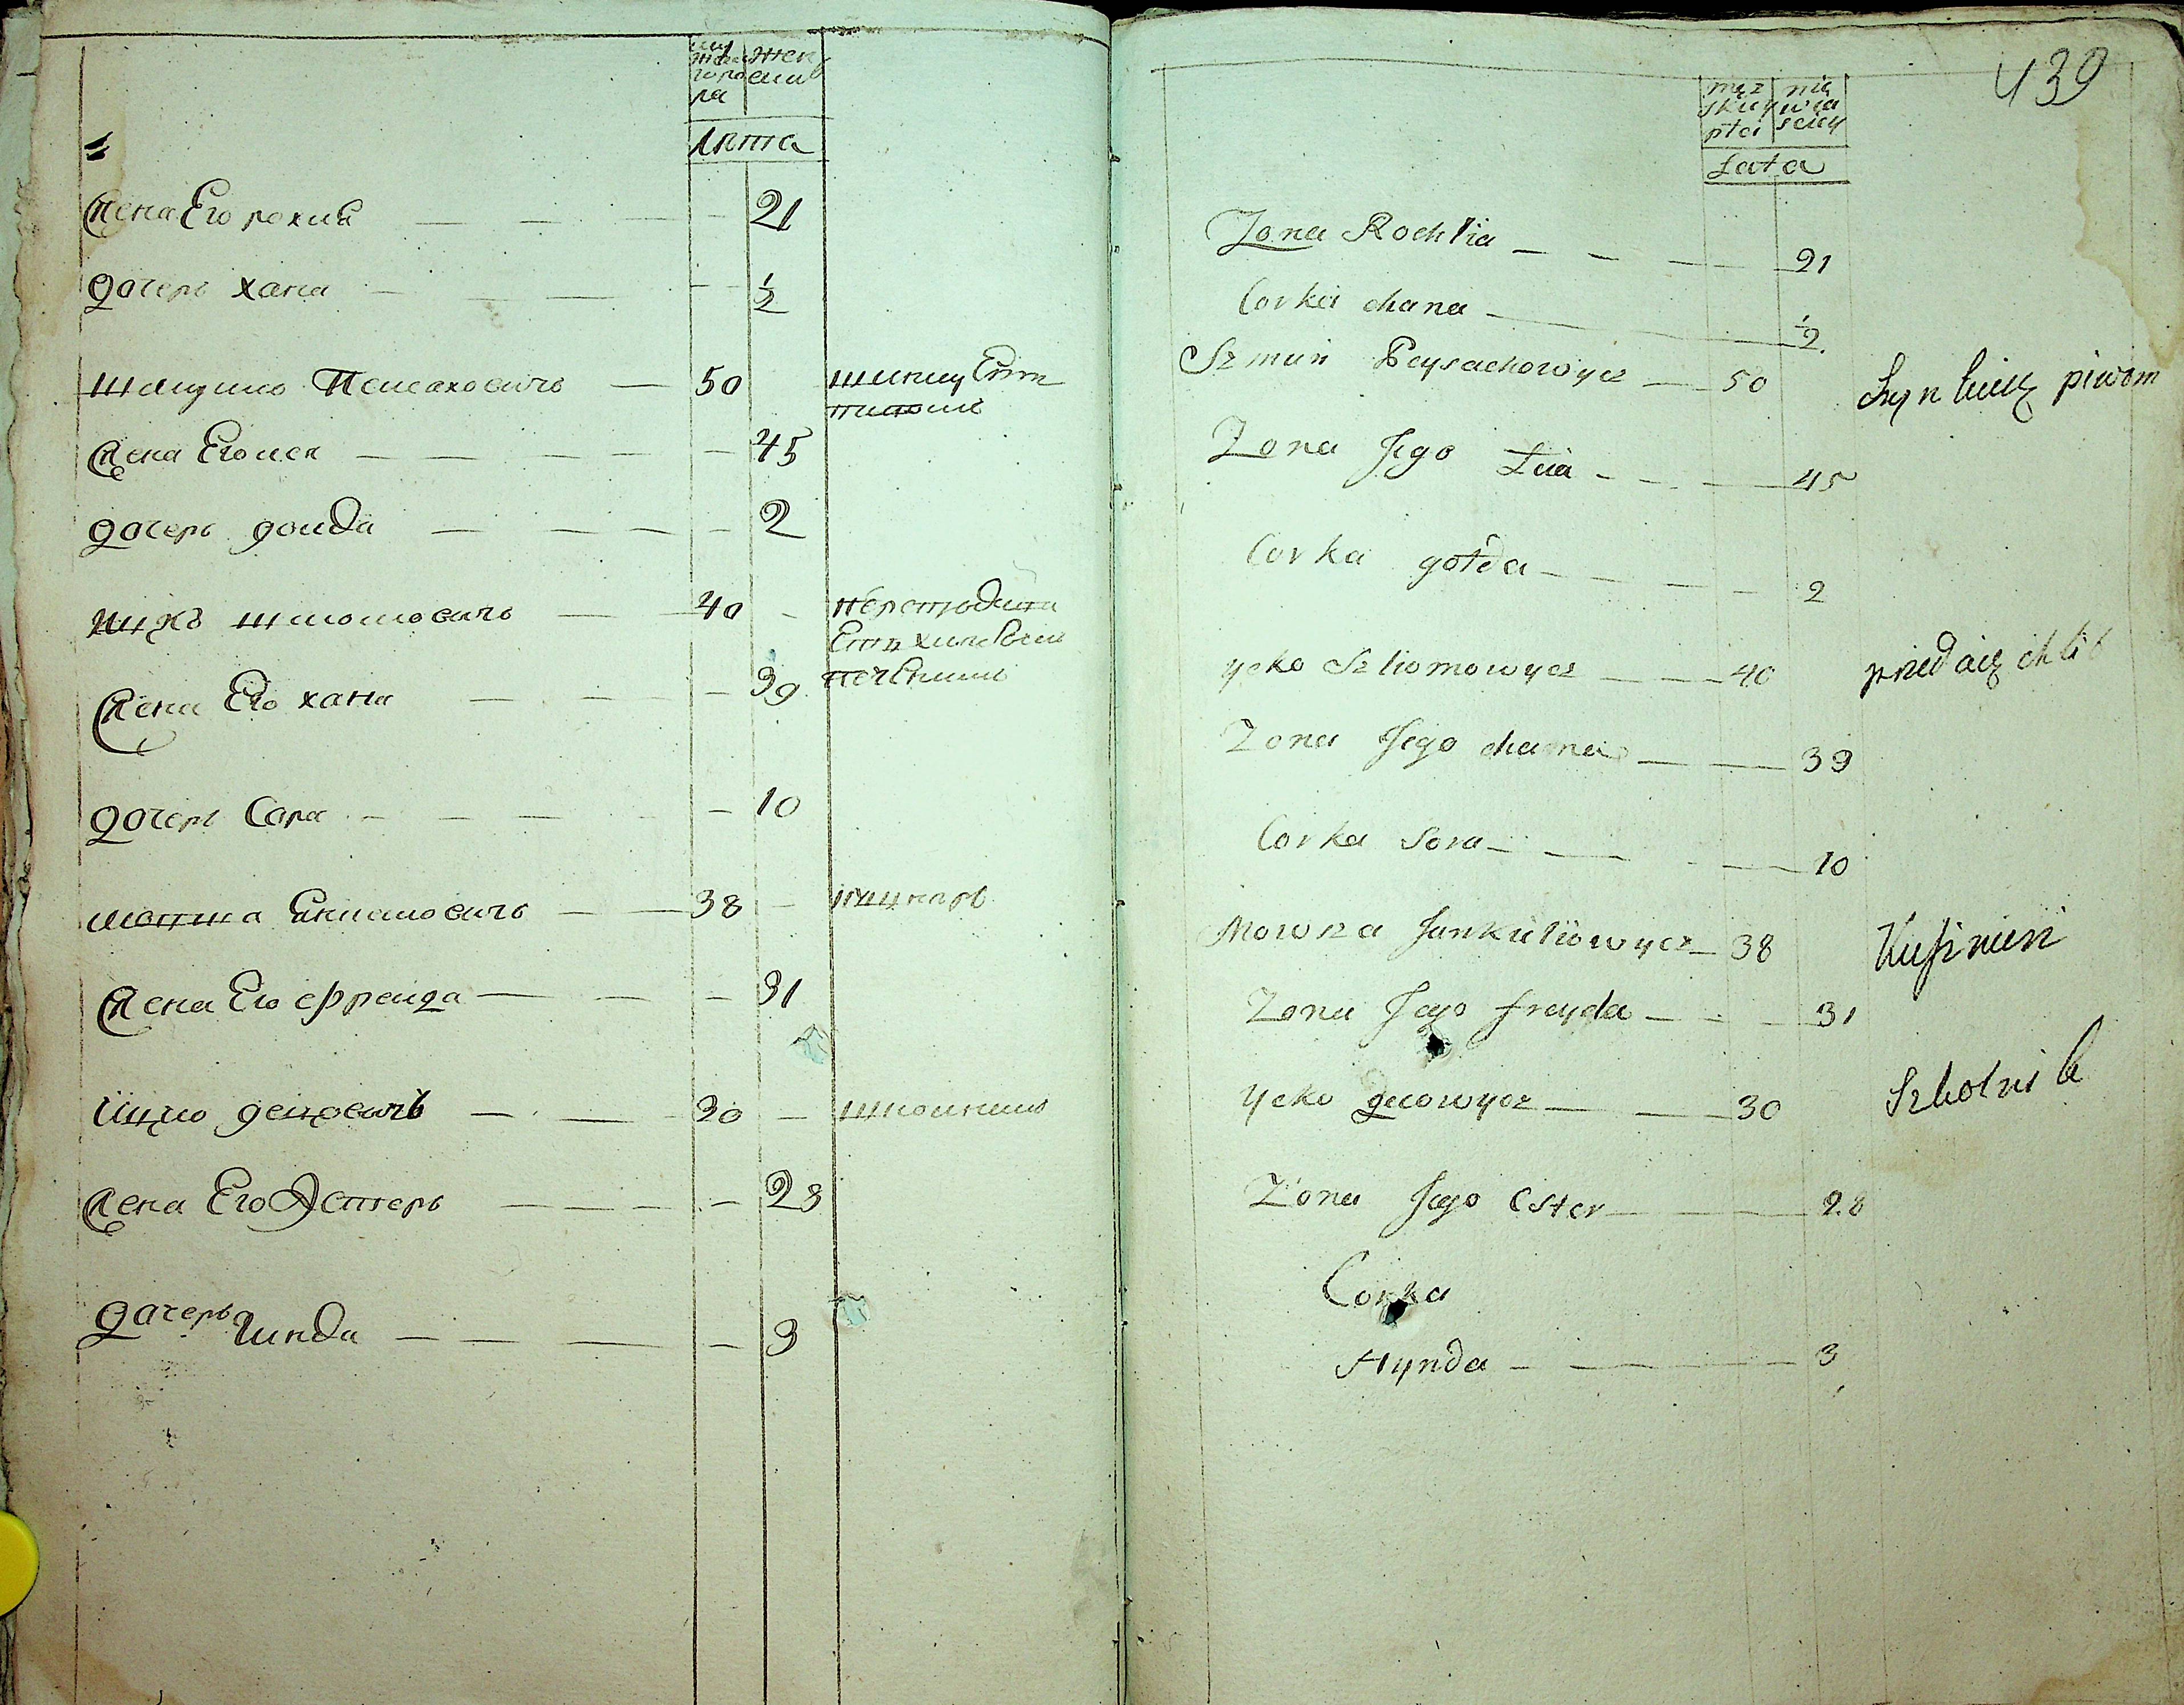 мужеска
го по
ла
женска
лѣта
Жена Его рохля — 21
дочерь хана — ½
Шмунь Пейсаховичь — 50
шинкуетъ
пивомъ
Жена Его лея — 45
дочерь голда — 2
Ицко шліомовичь — 40 —
Жена Его хана — 39
дочерь Сора — 10
мошка Янкелиовичь — 38 —
Жена Его фрейда — 31
Ицко — 30 — школникъ
Жена Его Эстеръ — 28
дочерь
Гинда — 3
439
męz
skiey
płci
nie
wia
sciey
Lata
Zona Rochlia — 21
Corka chana — ½
Szmuń Peysachowycz — 50 Szynkuię piwom
Zona Jego Leia — 45
Corka gołda — 2
ycko Szliomowycz — 40 przedaię chlib
Zona Jego chana — 39
Corka Sora — 10
Mowsza Jankieliowycz — 38 Kuśnierz
Zona Jego frayda — 31
ycko — 30 Szkolnik
Zona Jego Ester — 28
Corka
Hynda — 3